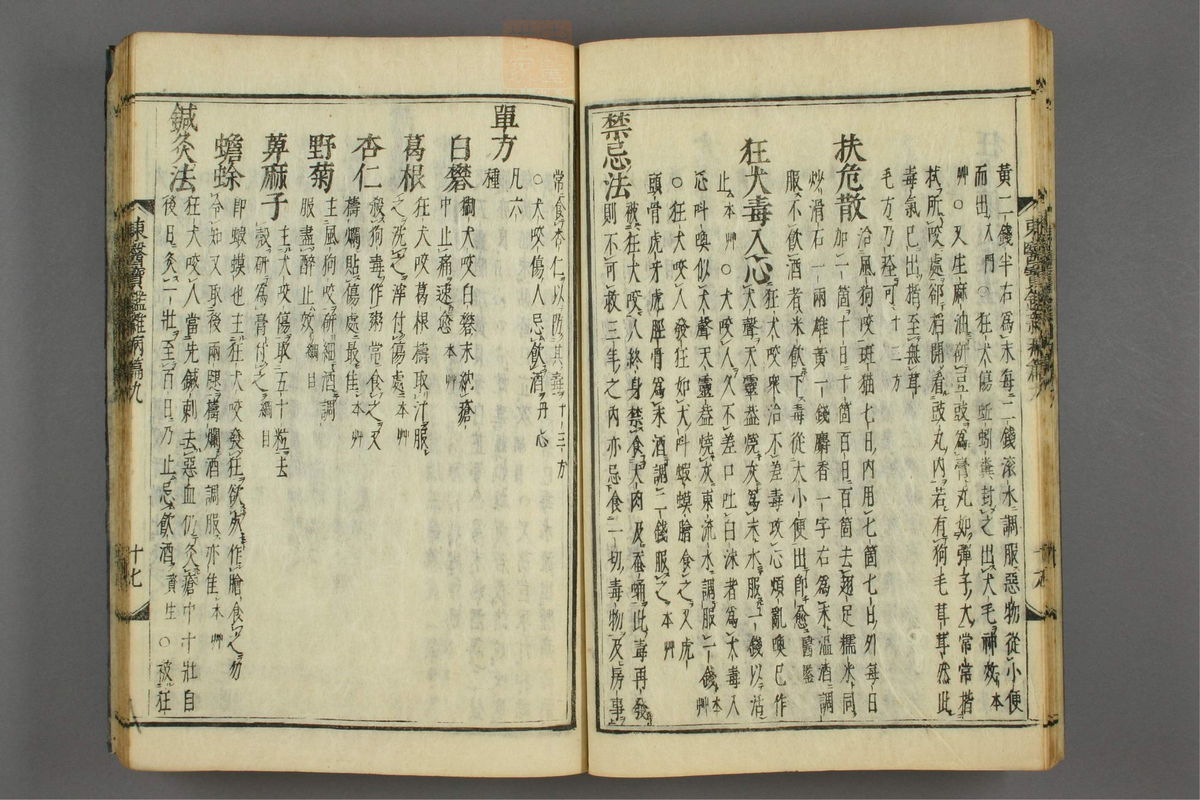 黃二錢半右爲末每二錢滾水調服惡物從小便
而出入門○狂犬傷蚯蚓糞封之出犬毛神效本
艸○又生麻油研豆豉爲膏丸如彈子大常常揩
拭所咬處却搯開看豉丸內若有狗毛茸茸然此
毒氣已出揩至無茸
毛方乃可十三方
扶危散治風狗咬斑猫七日內用七箇七日外每日
加一箇十日十箇百日百箇去翅足糯米同
炒滑石一兩雄黃一錢麝香一字右爲末溫酒調
服不飮酒者米飮下毒從大小便出卽愈醫鑑
狂犬毒入心狂犬咬衆治不差毒攻心煩亂喚已作
犬聲天靈盖燒灰爲末水服一錢以活
止本艸○犬咬人久不差口吐白沫者爲犬毒入
心叫喚似犬聲天靈盖燒灰東流水調服一錢本艸
○狂犬咬人發狂如犬叫蝦蟆膾食之又虎
頭骨虎牙虎脛骨爲末酒調二錢服之本艸
禁忌法被狂犬咬人終身禁食犬肉及蚕蛹此毒再發
則不可救三年之內亦忌食一切毒物及房事
常食杏仁以防其毒十三方
○犬咬傷人忌飮酒丹心
單方凡六種
白礬猘犬咬白礬末納瘡
中止痛速愈本艸
葛根狂犬咬葛根擣取汁服
之洗之滓付傷處本艸
杏仁殺狗毒作粥常食之又
擣爛貼傷處最佳本艸
野菊主風狗咬研細酒調
服盡醉止效綱目
萆麻子主犬咬傷取五十粒去
殼硏爲膏付之綱目
蟾蜍卽蝦蟆也主狂犬咬發狂欲死作膾食之勿
令知又取後兩腿擣爛酒調服亦佳本艸
鍼灸法狂犬咬人當先鍼刺去惡血仍灸瘡中十壯自
後日灸一壯至百日乃止忌飮酒資生○被狂
東醫寶鑑雜病篇九
十七